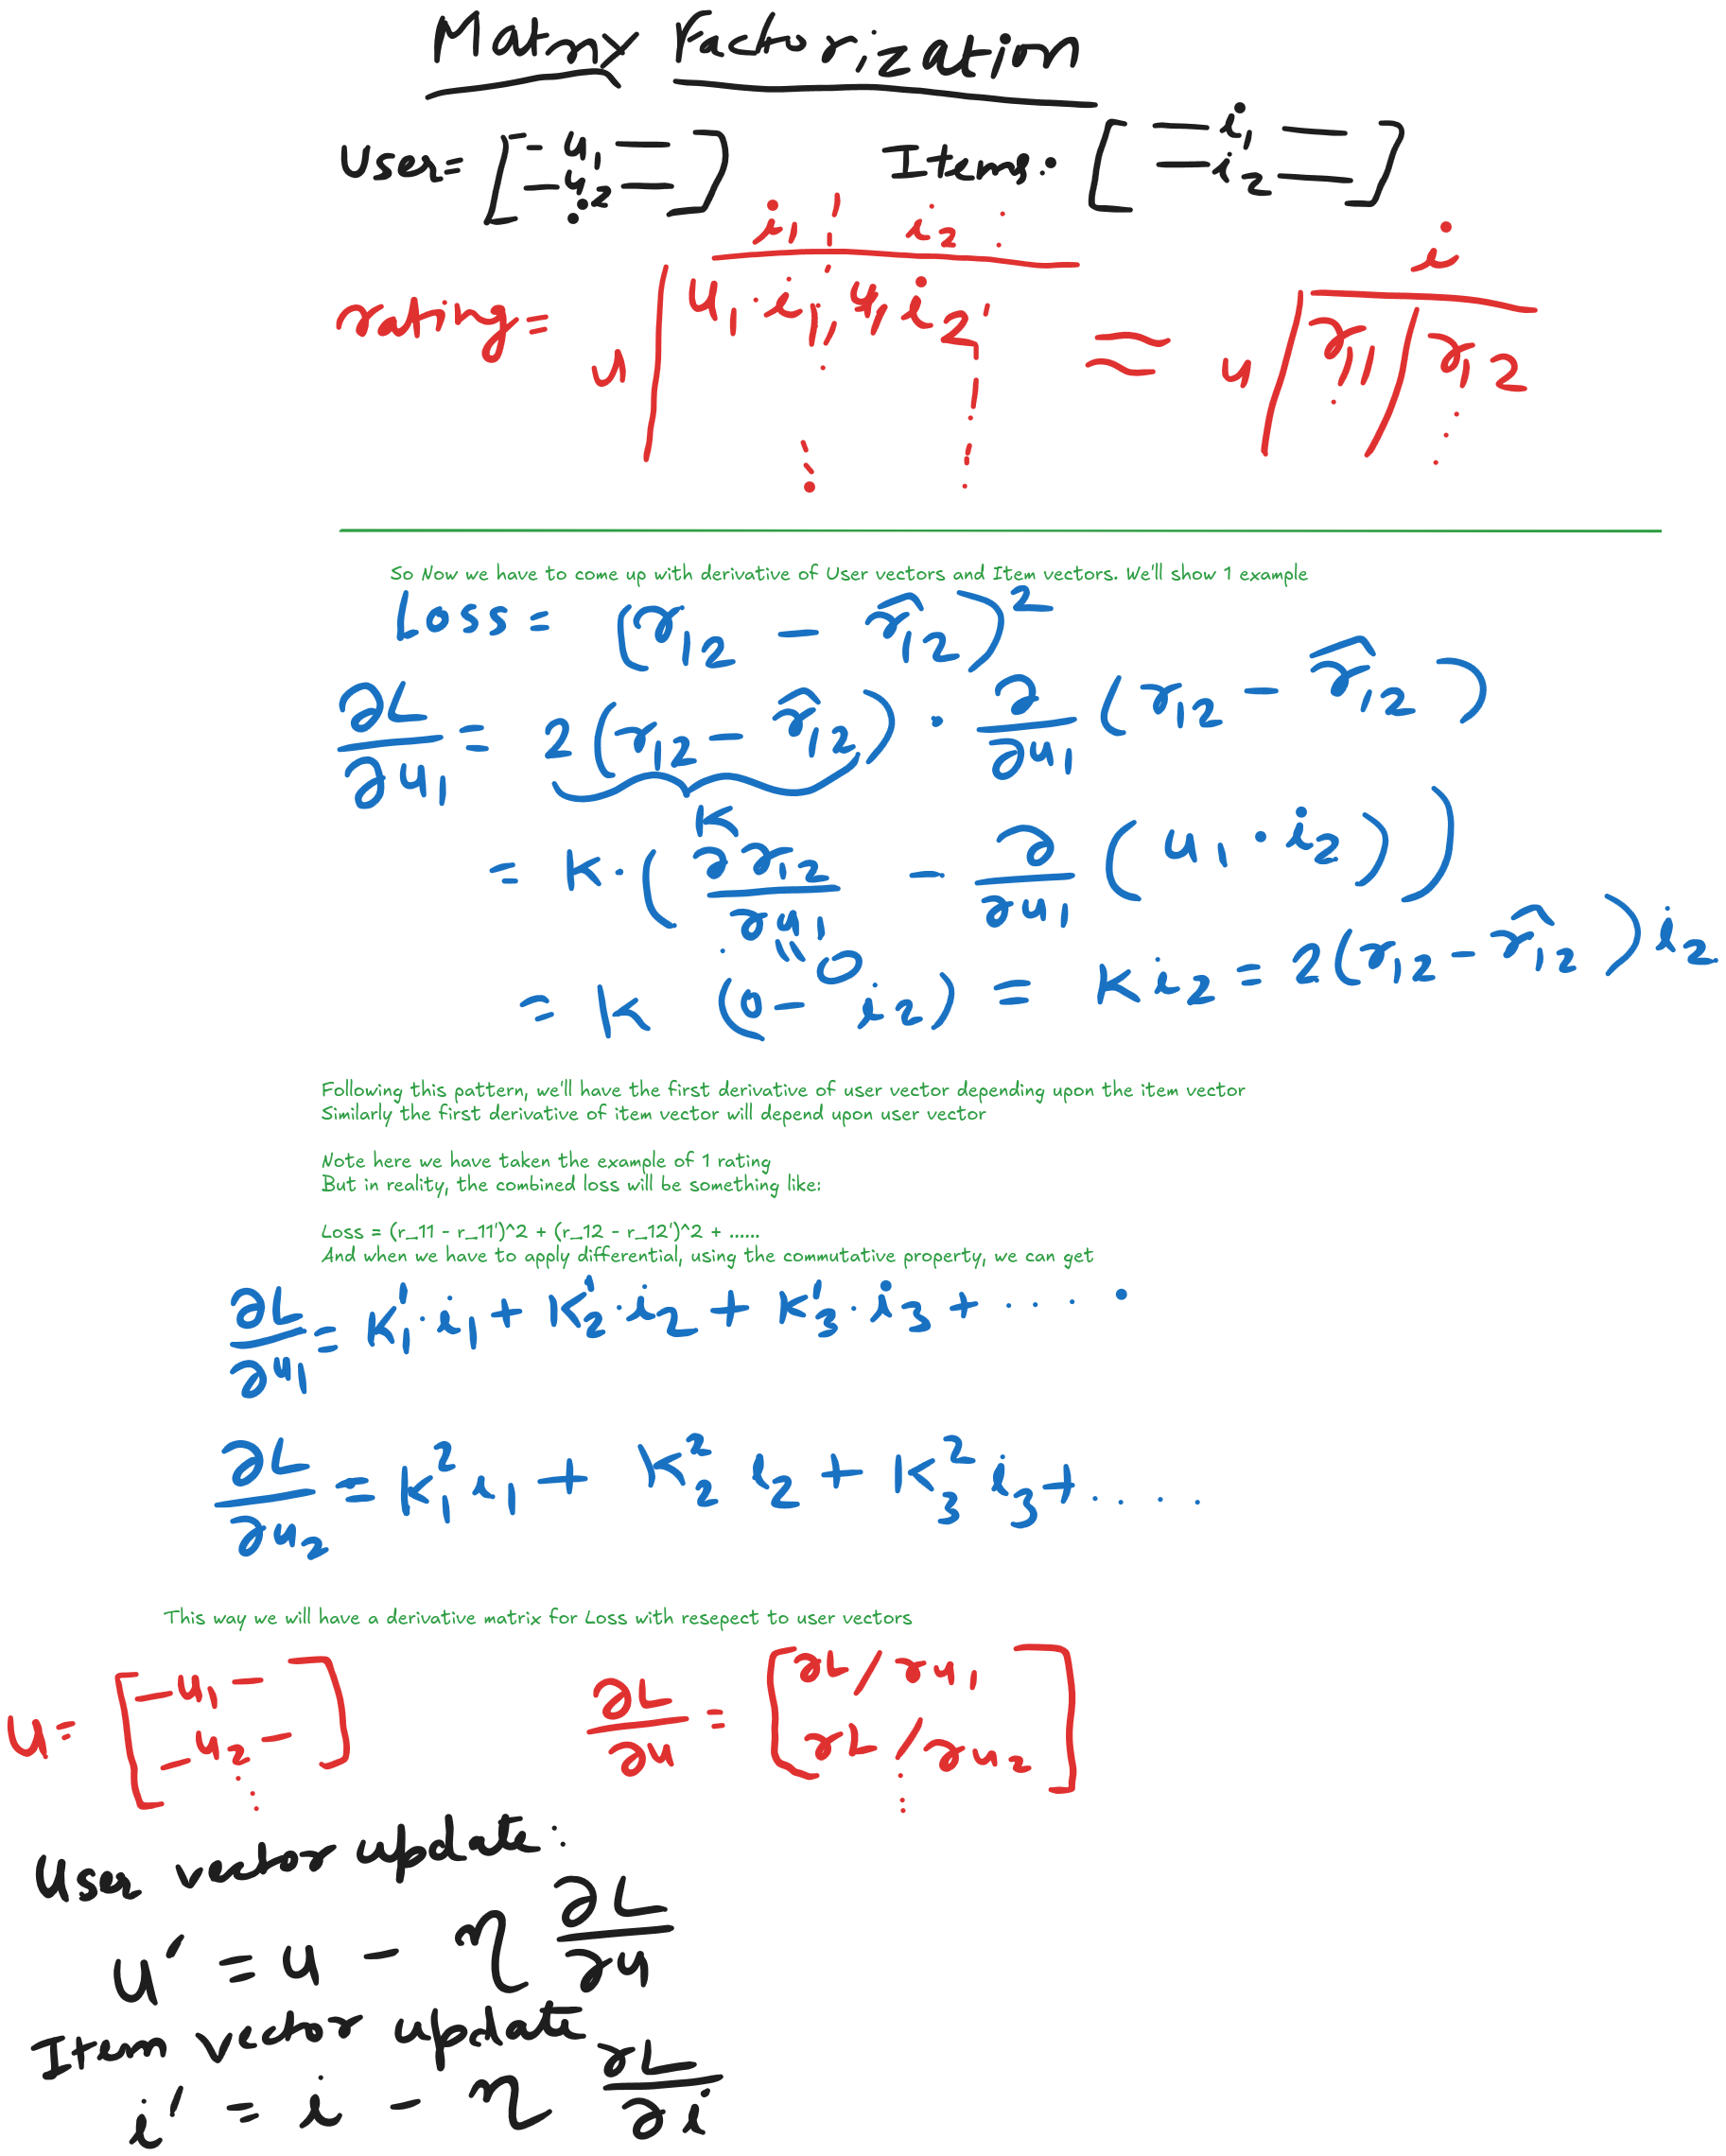 Matrix Factorization
User = [ – u₁ — – u₂ — ⋮ ] Items: [ — i₁ — — i₂ — ]
i₁ ¦ i₂ : i
rating = u | u₁·i₁ ¦ u₁ i₂ ¦ ≈ u | r₁₁ / r₁₂
So Now we have to come up with derivative of User vectors and Item vectors. We'll show 1 example
Loss = (r₁₂ – r̂₁₂)²
∂L/∂u₁ = 2(r₁₂ – r̂₁₂) · ∂/∂u₁ (r₁₂ – r̂₁₂)
K
= K · ( ∂r₁₂/∂u₁ – ∂/∂u₁ ( u₁ · i₂ ) )
\\ 0
= K (0 – i₂) = K i₂ = 2(r₁₂ – r̂₁₂) i₂
Following this pattern, we'll have the first derivative of user vector depending upon the item vector
Similarly the first derivative of item vector will depend upon user vector
Note here we have taken the example of 1 rating
But in reality, the combined loss will be something like:
Loss = (r_11 - r_11')^2 + (r_12 - r_12')^2 + ......
And when we have to apply differential, using the commutative property, we can get
∂L/∂u₁ = K₁¹·i₁ + K₂¹·i₂ + K₃¹·i₃ + ....
∂L/∂u₂ = K₁² i₁ + K₂² i₂ + K₃² i₃ + ....
This way we will have a derivative matrix for Loss with resepect to user vectors
U = [ – u₁ – – u₂ – ⋮ ] ∂L/∂u = [ ∂L/∂u₁ ∂L/∂u₂ ⋮ ]
User vector update:
u' = u – η ∂L/∂u
Item vector update
i' = i – η ∂L/∂i